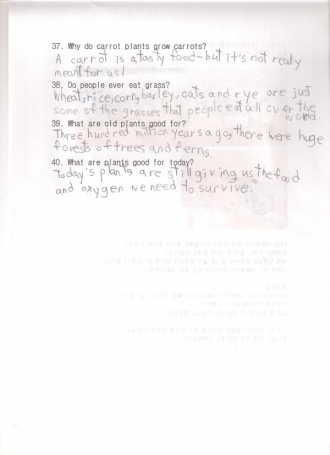 37. Why do carrot plants grow carrots?
A carrot is a tasty food-but it's not really
meant for us!
38. Do people ever eat grass?
Wheat, rice, corn, barley, oats and rye are just
some of the grasses that people eat all over the
world
39. What are old plants good for?
Three hundred million years ago, there were huge
forests of trees and ferns.
40. What are plants good for today?
Today's plants are still giving us the food
and oxygen we need to survive.